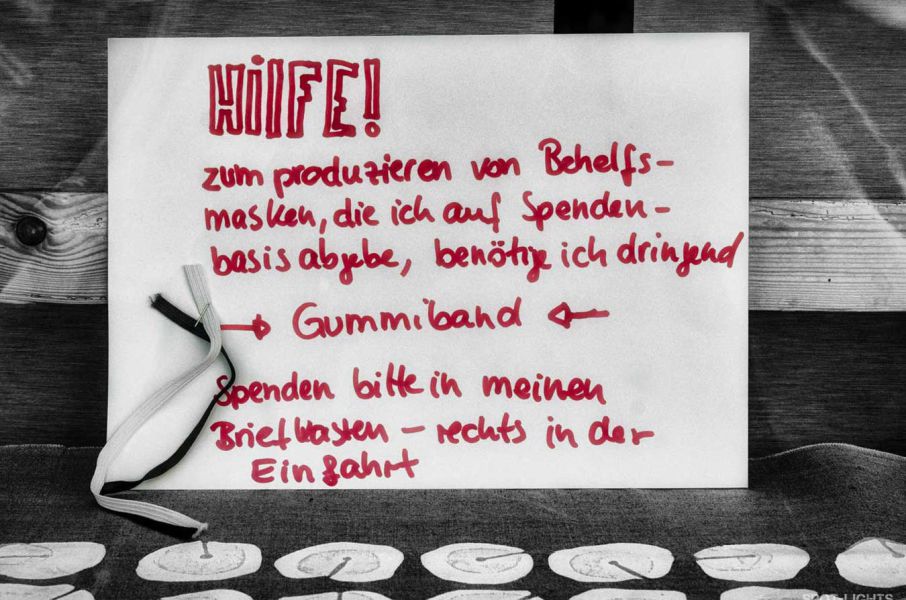 HiLFE!
zum produzieren von Behelfs-
masken, die ich auf Spenden-
basis abgebe, benötige ich dringend
Gummiband
Spenden bitte in meinen
Briefkasten - rechts in der
Einfahrt
SPOT-LIGHTS